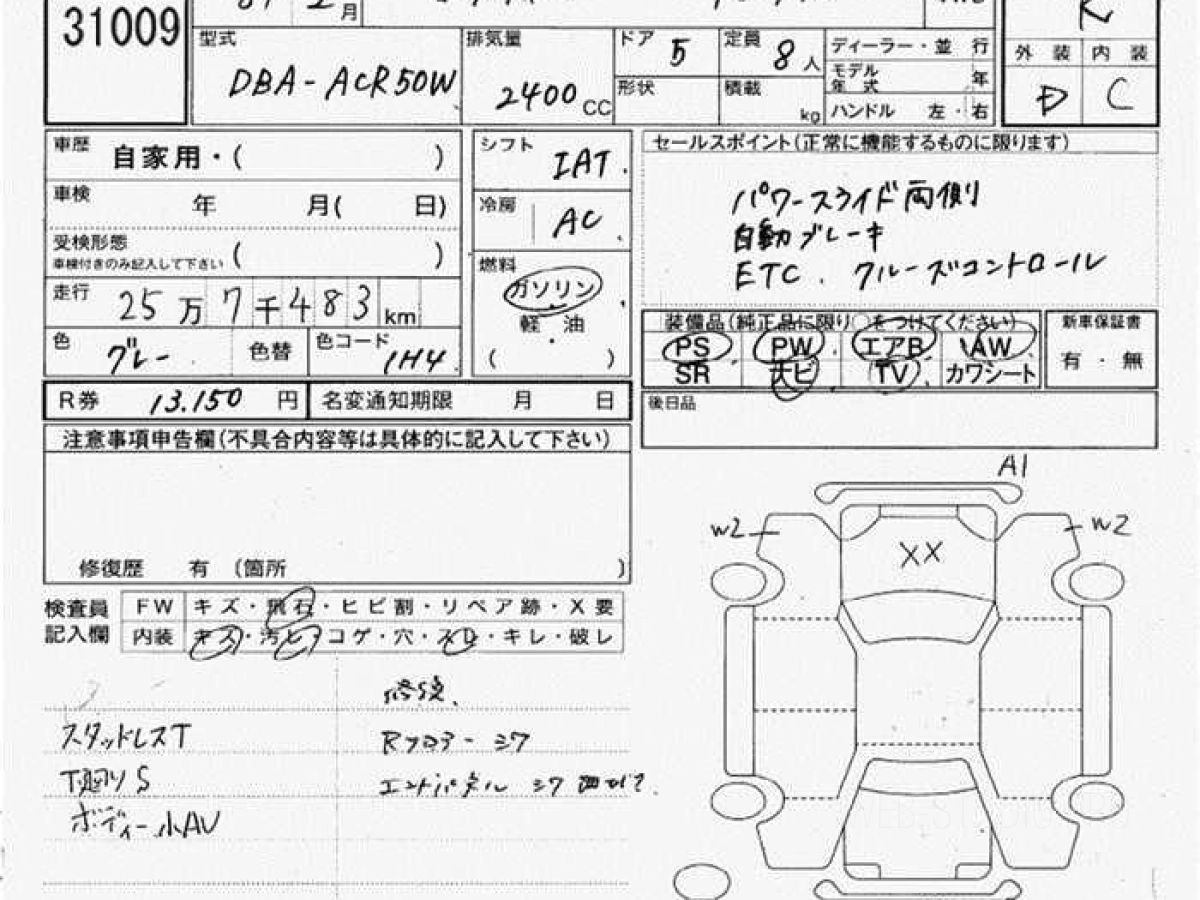 31009
月
型式 DBA-ACR50W
排気量 2400 CC
ドア 5
定員 8 人
形状
積載 kg
ディーラー・並 行
モデル年式 年
ハンドル 左・右
R
外 装 内 装
D C
車歴 自家用・( )
車検 年 月( 日)
受検形態 ( )
車検付きのみ記入して下さい
走行 25万7千483km
色 グレー 色替 色コード 1H4
シフト IAT
冷房 AC
燃料
ガソリン
軽 油
( )
セールスポイント(正常に機能するものに限ります)
パワースライド両側
自動ブレーキ
ETC. クルーズコントロール
装備品(純正品に限り○をつけてください)
PS PW エアB AW
SR ナビ TV カワシート
新車保証書
有・無
R券 13.150 円 名変通知期限 月 日
後日品
注意事項申告欄(不具合内容等は具体的に記入して下さい)
修復歴 有 (箇所 )
検査員記入欄
FW キズ・飛石・ヒビ割・リペア跡・X要
内装 キズ・汚レ・コゲ・穴・スレ・キレ・破レ
修復
スタッドレスT
T廻りS
ボディー小AU
エンドパネル
A1
W2
W2
XX